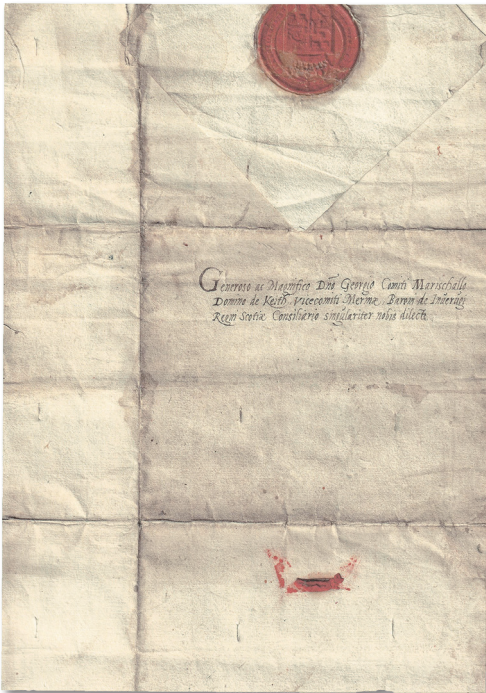 Generoso ac Magnifico Dño Georgio Comiti Marischallo
Domino de Keith, Vicecomiti Mernæ, Baroni de Inderugi
Regni Scotiæ Consiliario singulariter nobis dilecti